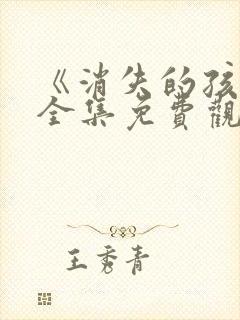 《消失的孩
全集免費觀
王秀青